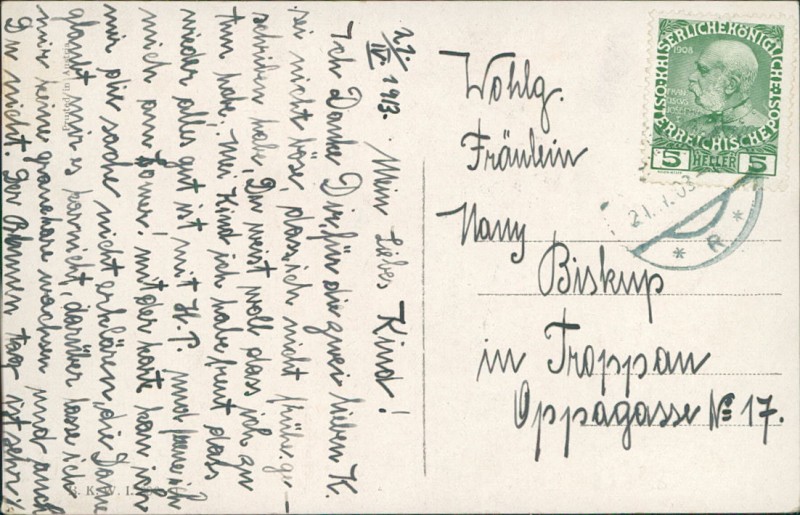 21./IV 1913.
Mein Liebes Kind!
Ich Danke Dir für die zwei lieben K.
sei nicht böse, dass ich nicht früher ge-
schriben hab, Du weist woll das ich zu
tun hab. Mei Kind ich habe freut dass
wieder alles gut ist mit H.P. und
mich an mit der karte kan ich
mir die sache nicht erklären die Dame
glaubt mir es garnicht, darüber lasse ich
mir keine grauehare wachsen und auch
Du nicht. Der Blumen tag ist sehr
Printed in Austria
B. K. W. I.
Wohlg.
Fräulein
Nany
Biskup
in Troppau
Oppagasse No 17.
KAISERLICHEKÖNIGLICHE
ÖSTERREICHISCHE POST
1908
5 HELLER 5
21.
* R *